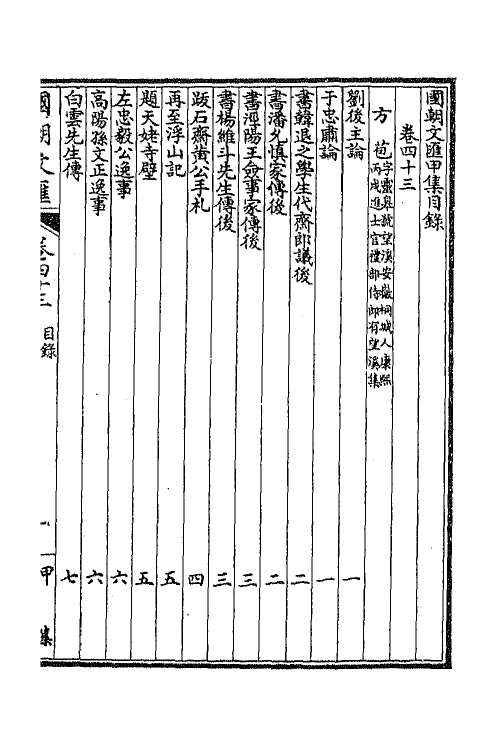 國朝文匯甲集目錄
卷四十三
方苞 字靈皋號望溪安徽桐城人康熙丙戌進士官禮部侍郎有望溪集
劉後主論 一
于忠肅論 一
書韓退之學生代齋郎議後 二
書潘允慎家傳後 二
書涇陽王僉事家傳後 三
書楊維斗先生傳後 三
跋石齋黃公手札 四
再至浮山記 五
題天姥寺壁 五
左忠毅公逸事 六
高陽孫文正逸事 六
白雲先生傳 七
國朝文匯 卷四十三 目錄 一 甲集